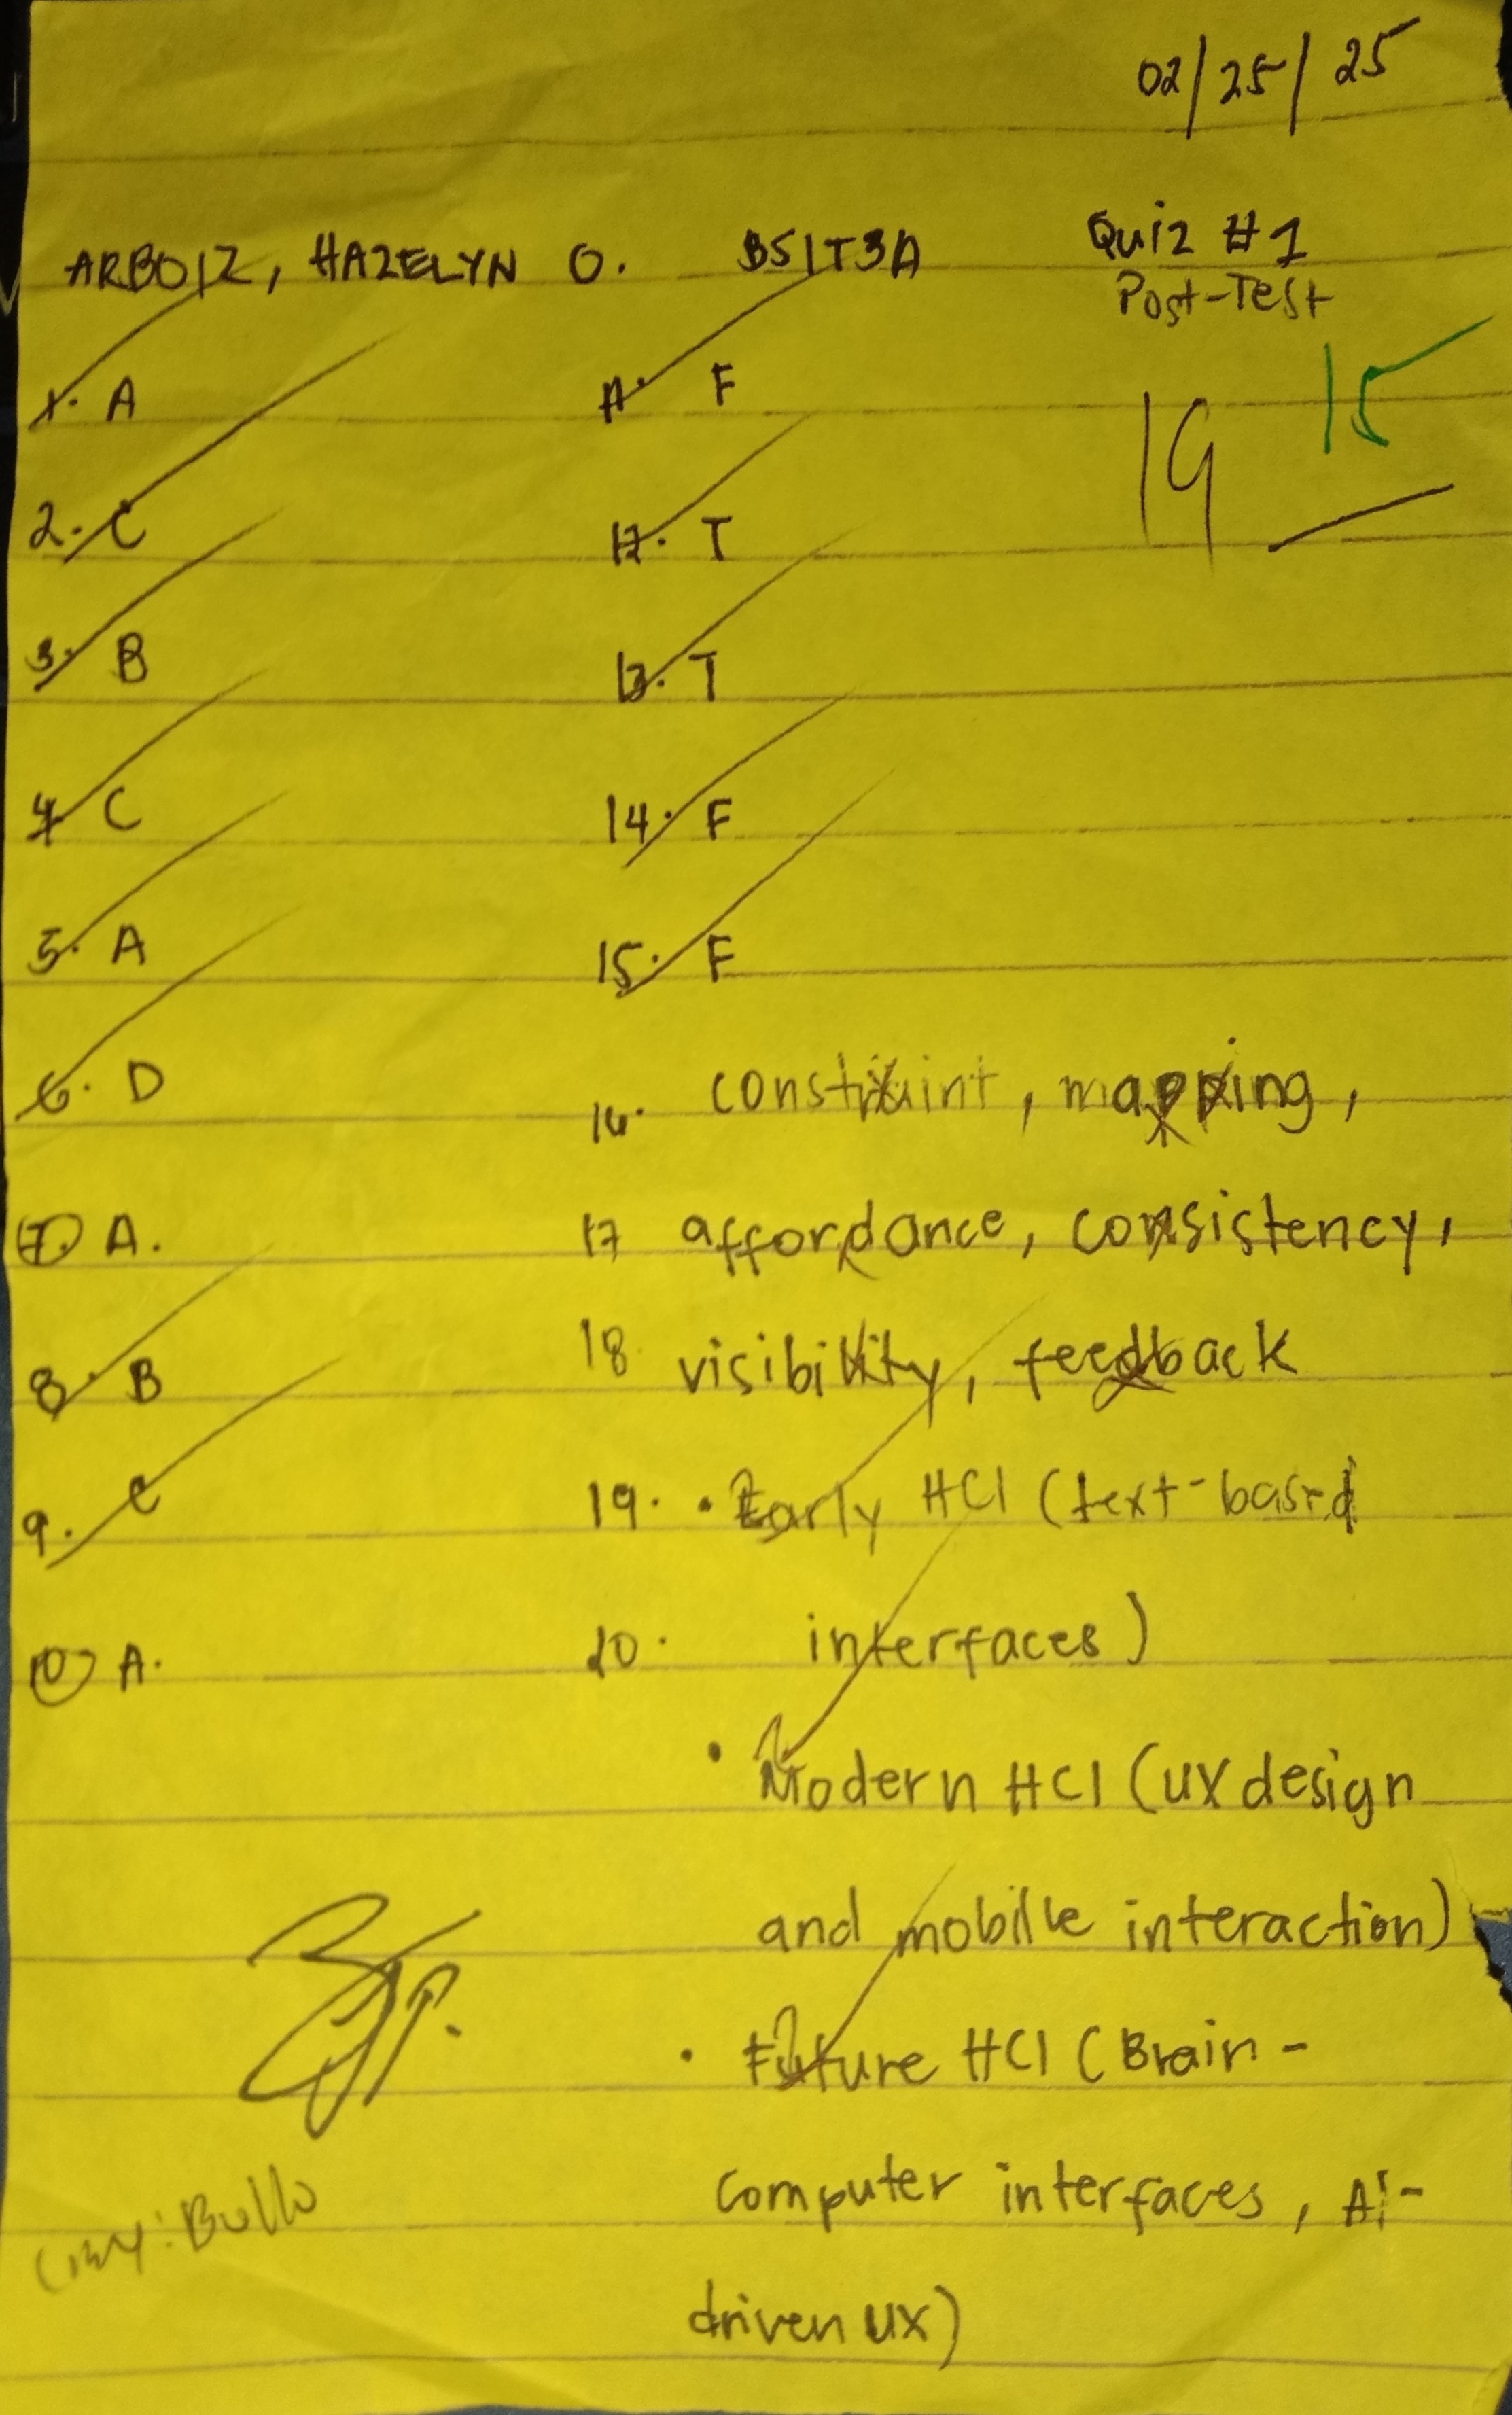 02/25/25
ARBOIZ, HAZELYN O. BSIT3A Quiz #1
Post-Test
15
19
1. A
2. C
3. B
4. C
5. A
6. D
7. A.
8. B
9. C
10 A.
11. F
12. T
13. T
14. F
15. F
16. constraint, mapping,
17 affordance, consistency,
18 visibility, feedback
19. • Early HCI (text-based
20. interfaces)
• Modern HCI (UX design
and mobilke interaction)
• Future HCI (Brain-
computer interfaces, AI-
driven UX)